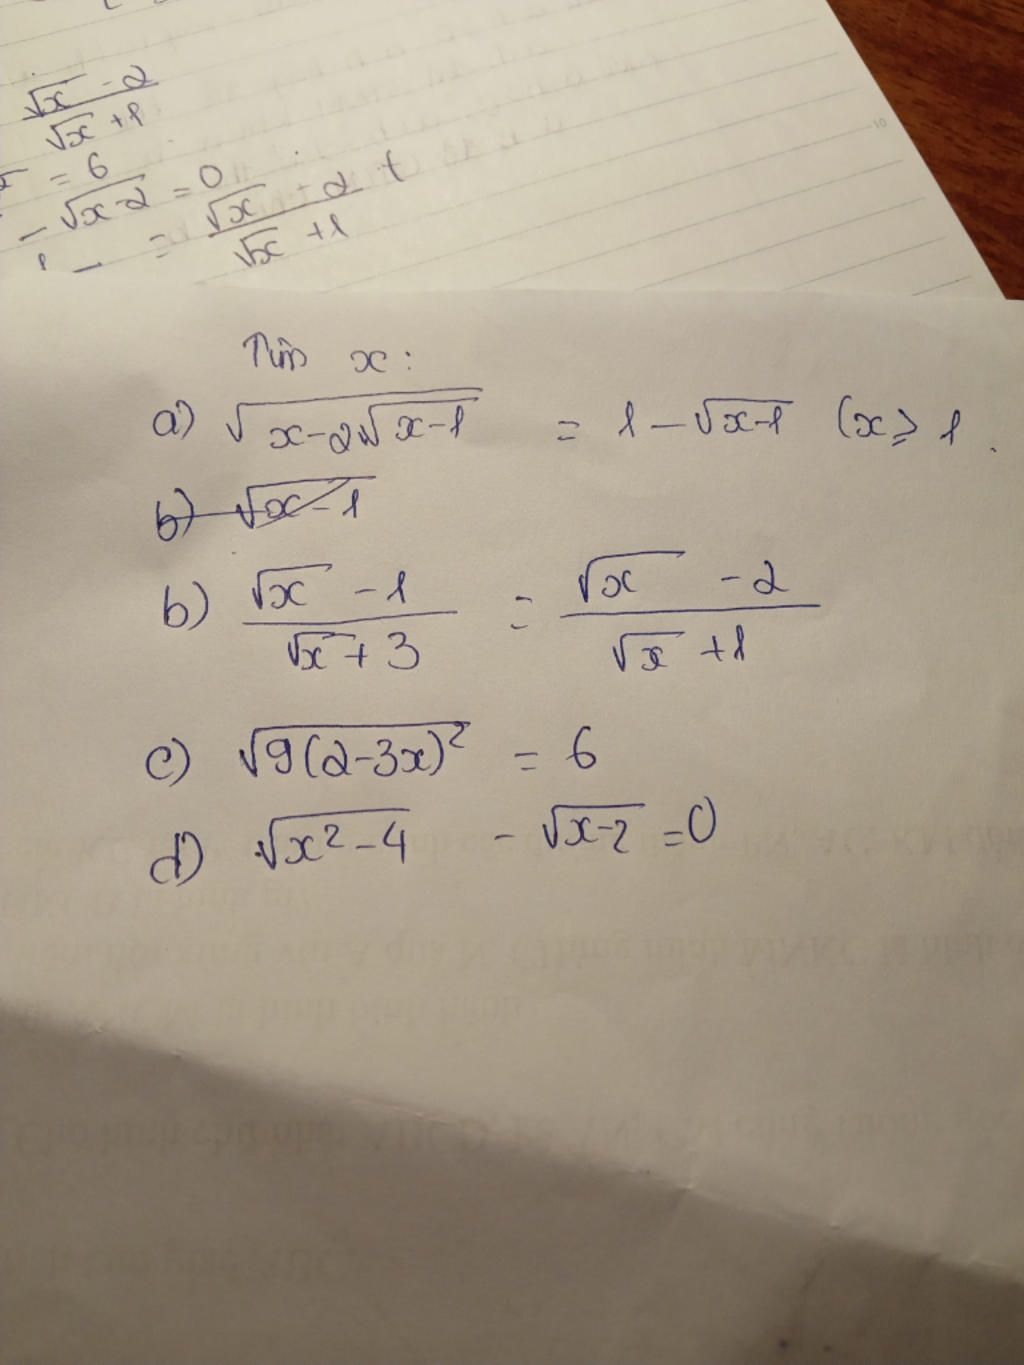 √x - 2 / √x + 1
= 6
- √x-2 = 0
= √x - 2 / √x + 1
Tìm x:
a) √(x-2√(x-1)) = 1 - √(x-1) (x ≥ 1
b) √x-1
b) (√x - 1)/(√x + 3) = (√x - 2)/(√x + 1)
c) √(9(2-3x)²) = 6
d) √(x²-4) - √(x-2) = 0